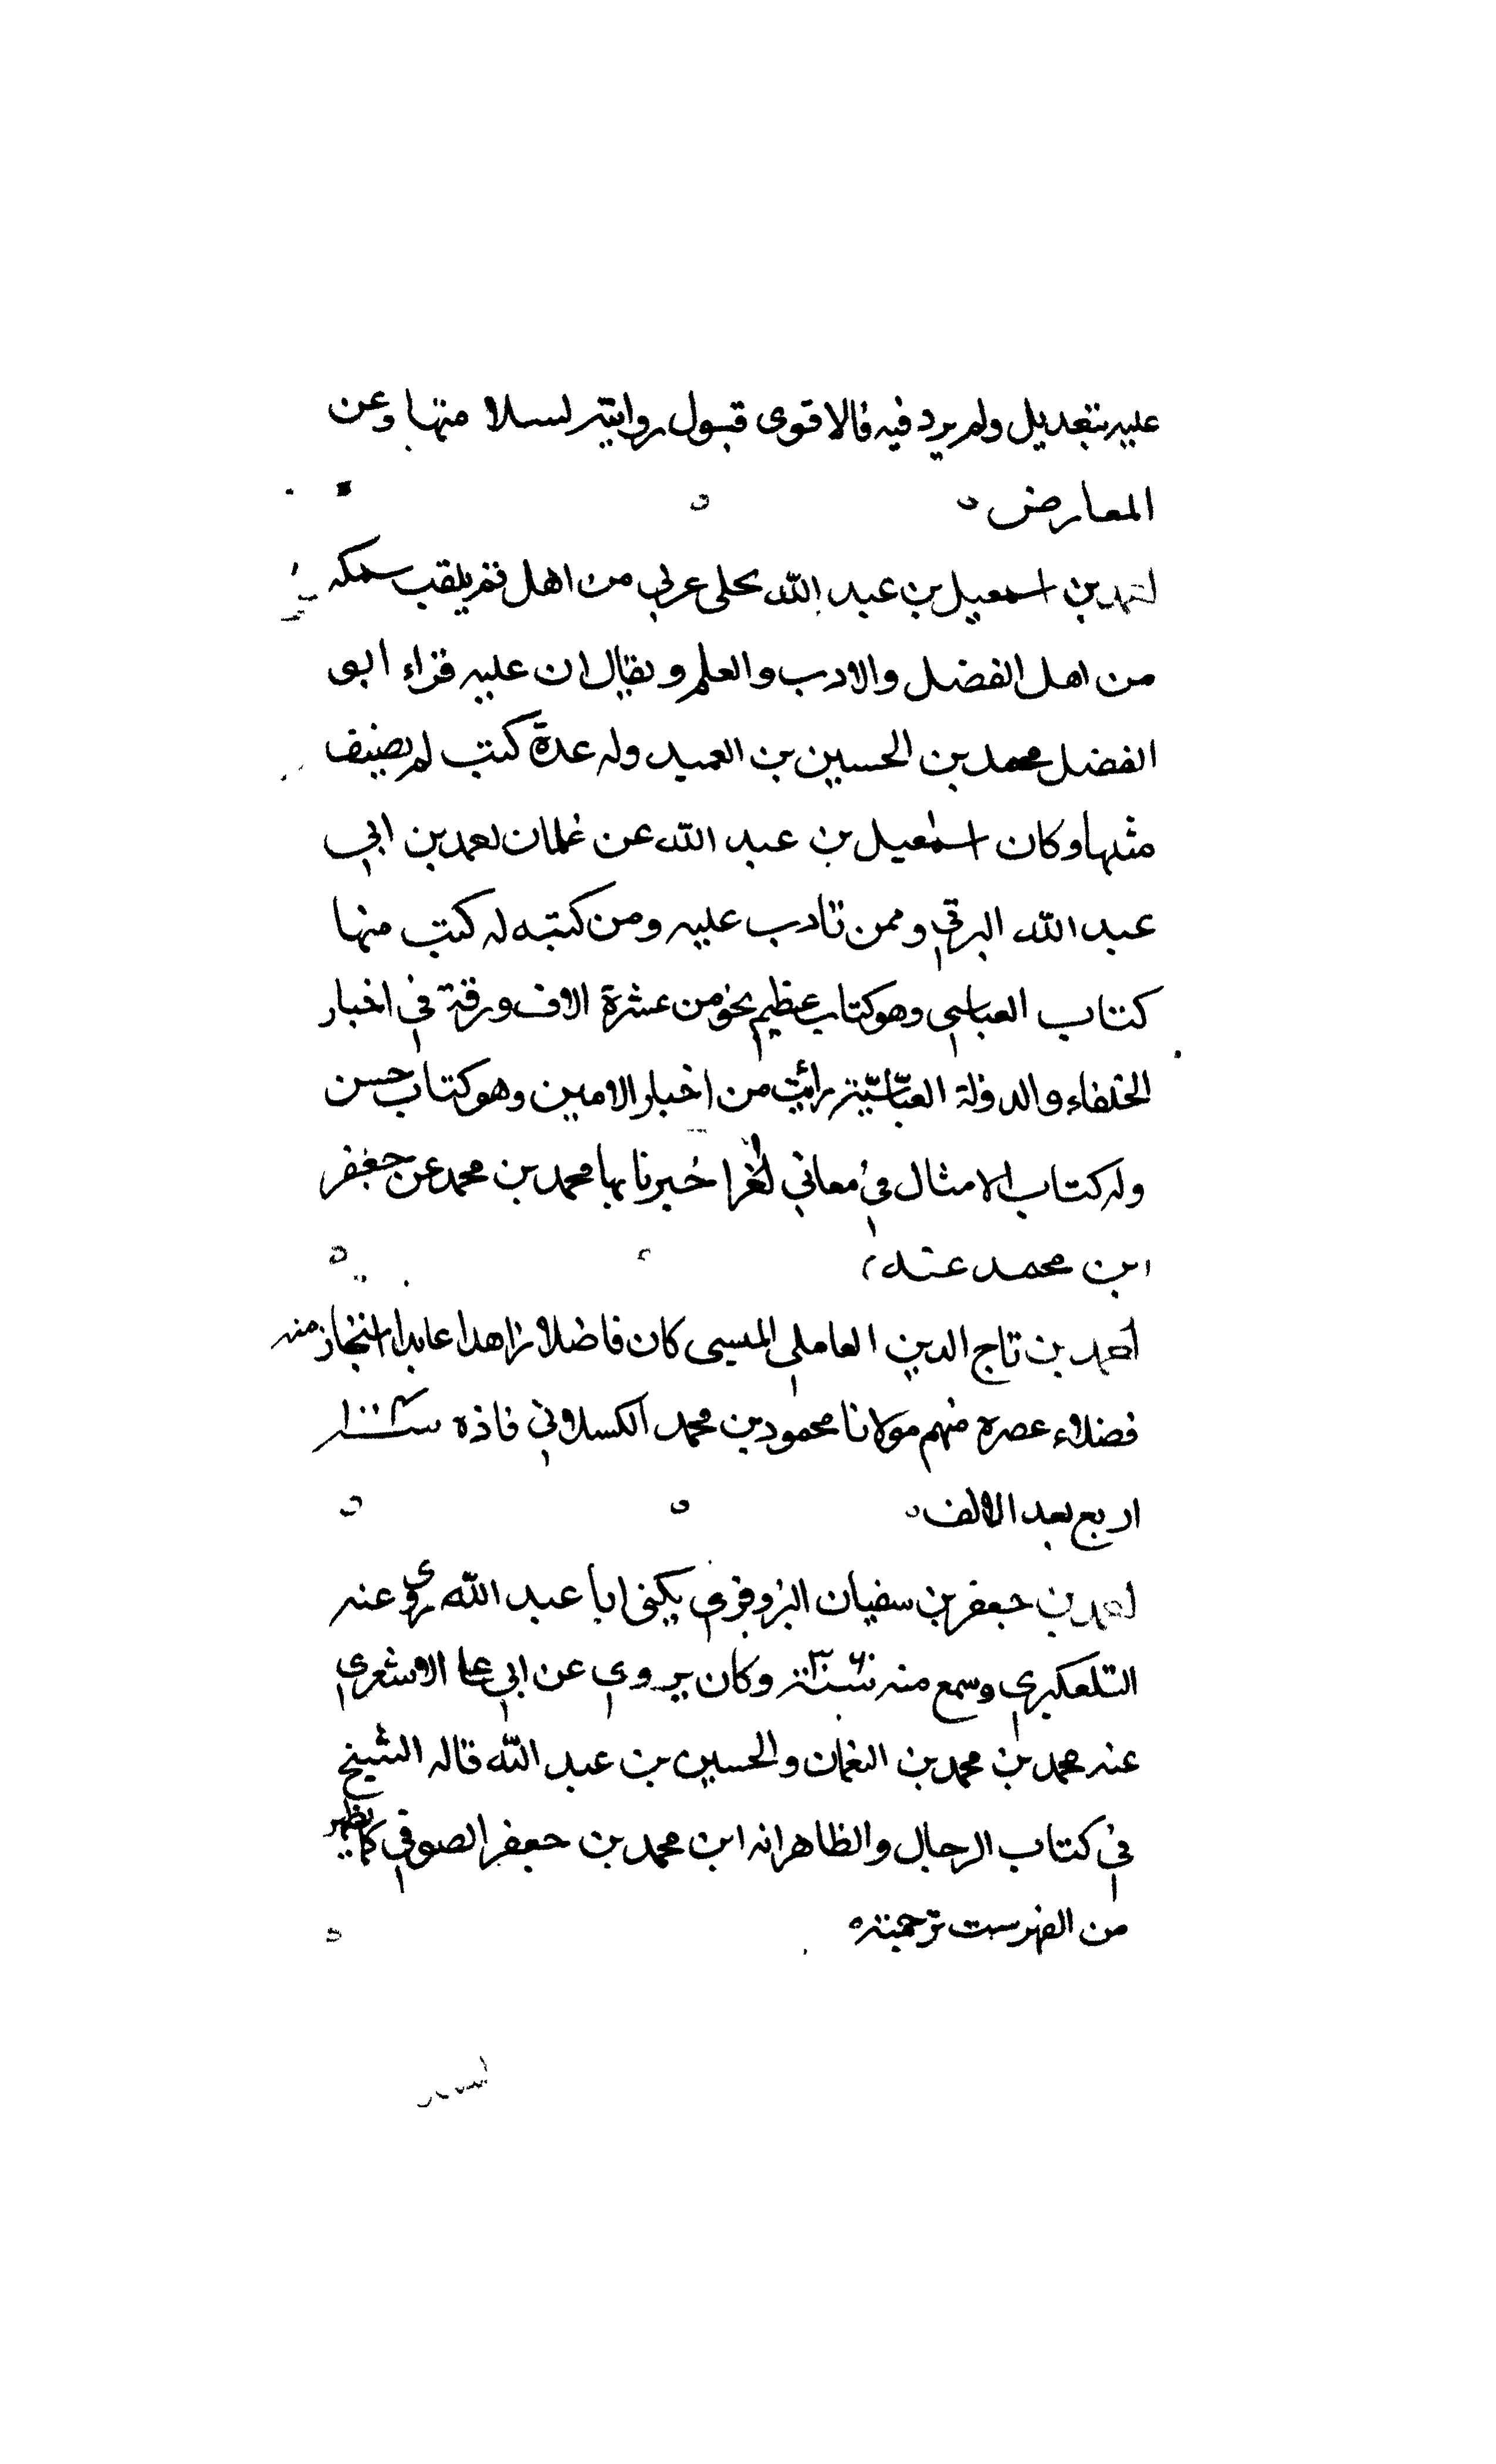 عليه بتعديل ولم يرد فيه فالاقوى قبول روايته لسلامتها وعن
المعارض
احمد بن اسمعيل بن عبد الله بجلى عربي من اهل قم يلقب سمكه
من اهل الفضل والادب والعلم ويقال ان عليه قراء ابى
الفضل محمد بن الحسين بن العميد وله عدة كتب لم يصنف
مثلها وكان اسمعيل بن عبد الله عن غلمان احمد بن ابي
عبد الله البرقي وممن تادب عليه ومن كتبه له كتب منها
كتاب العباسي وهو كتاب عظيم نحو من عشرة الاف ورقة في اخبار
الخلفاء والدولة العبّاسيّة رائت من اخبار الامين وهو كتاب حسن
وله كتاب الامثال في معاني اخبرنا بها محمد بن محمد عن جعفر
ابن محمد عنه
احمد بن تاج الدين العاملي الميسى كان فاضلا زاهدا عابدا استجاز منه
فضلاء عصره منهم مولانا محمود بن محمد الكسلاني
اربع بعد الالف
احمد بن جعفر بن سفيان البزوفري يكنى ابا عبد الله روى عنه
التلعكبري وسمع منه سنة وكان يروى عن ابي على الاشعري
عنه محمد بن محمد بن النعمان والحسين بن عبد الله قاله الشيخ
في كتاب الرجال والظاهر انه ابن محمد بن جعفر الصوفي كما يظهر
من الفهرست ترجمته